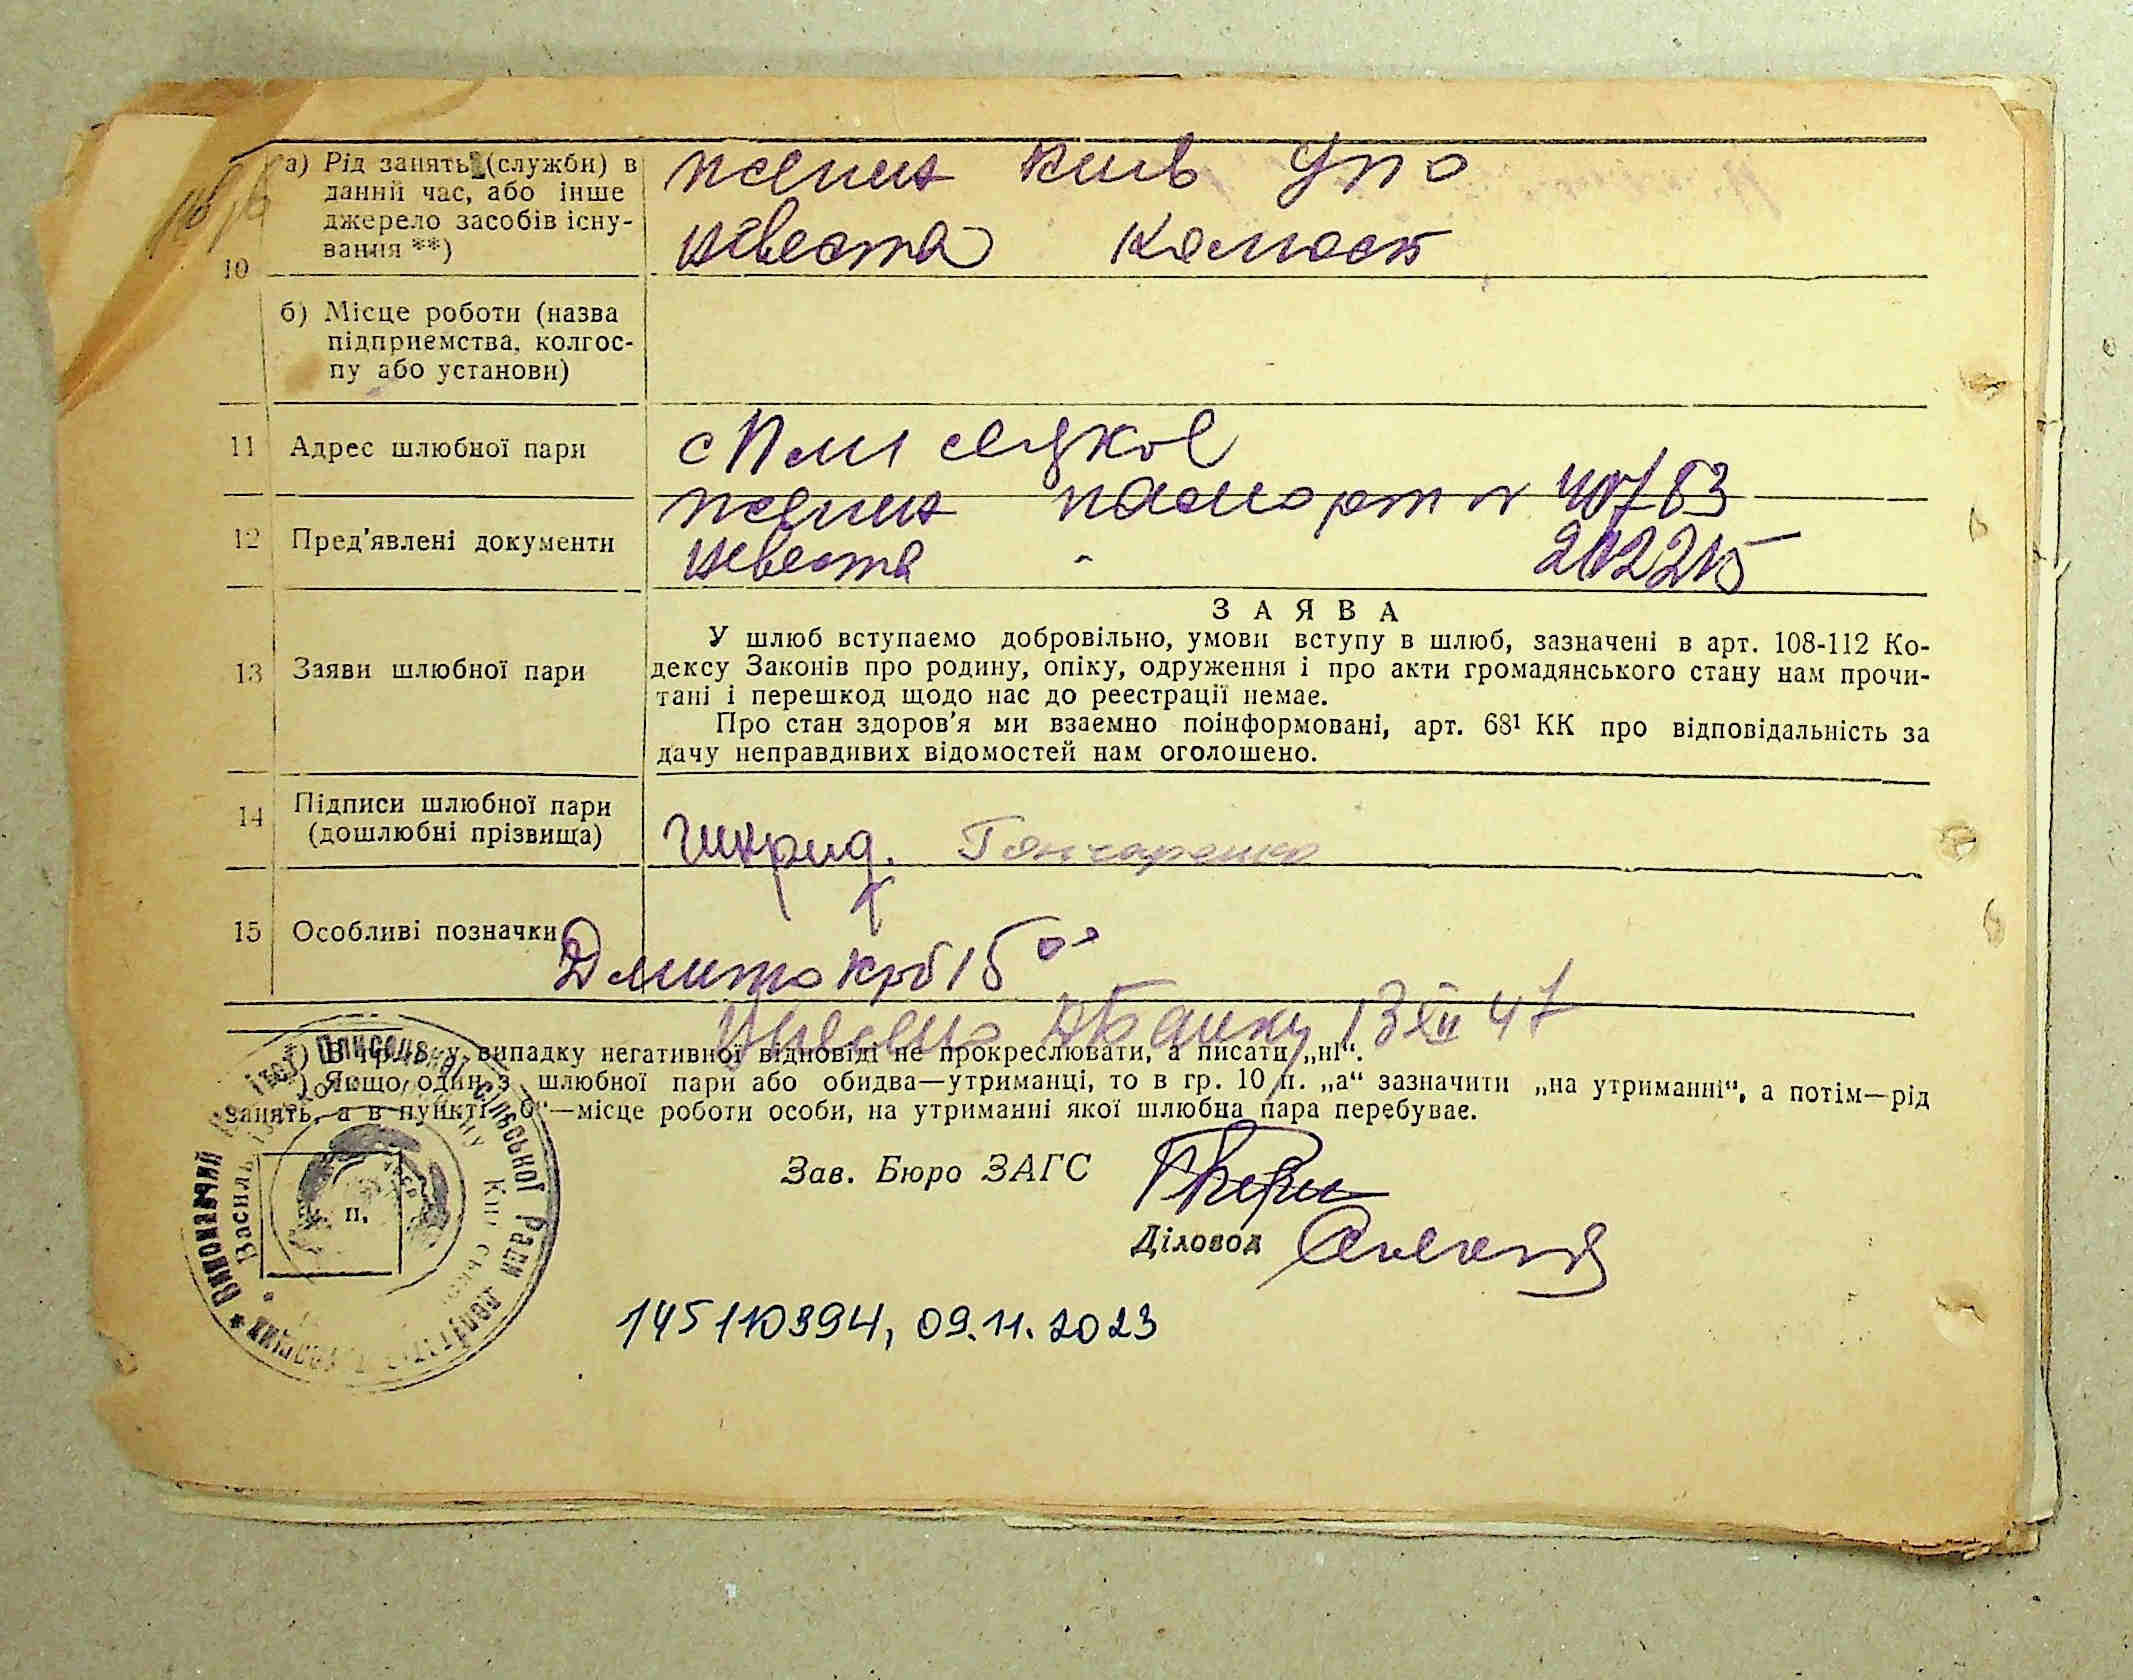 10
а) Рід занять (служби) в
данний час, або інше
джерело засобів існу-
вання **)
жених Киів УПО
невеста
б) Місце роботи (назва
підприємства, колгос-
пу або установи)
11 Адрес шлюбної пари
с
12 Пред'явлені документи
жених паспорт №
невеста - 202215
13 Заяви шлюбної пари
ЗАЯВА
У шлюб вступаємо добровільно, умови вступу в шлюб, зазначені в арт. 108-112 Ко-
дексу Законів про родину, опіку, одруження і про акти громадянського стану нам прочи-
тані і перешкод щодо нас до реєстрації немає.
Про стан здоров'я ми взаємно поінформовані, арт. 68¹ КК про відповідальність за
дачу неправдивих відомостей нам оголошено.
14 Підписи шлюбної пари
(дошлюбні прізвища)
Гончаренко
15 Особливі позначки
15 00
13 XII 47
випадку негативної відповіді не прокреслювати, а писати „ні“.
Якщо один з шлюбної пари або обидва—утриманці, то в гр. 10 п. „а“ зазначити „на утриманні“, а потім—рід
занять, а в пункті „б“—місце роботи особи, на утриманні якої шлюбна пара перебуває.
Зав. Бюро ЗАГС
Діловод
п.
Виконавчий
сільської Ради депутатів трудящих
145110394, 09.11.2023